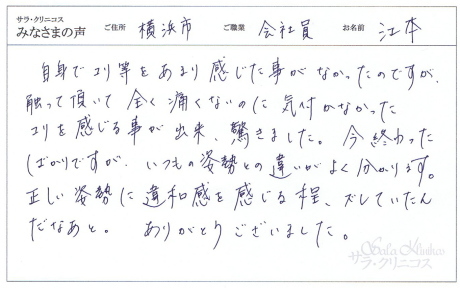 サラ・クリニコス
みなさまの声 ご住所 横浜市 ご職業 会社員 お名前 江本
自身でコリ等をあまり感じた事がなかったのですが、
触って頂いて全く痛くないのに気付かなかった
コリを感じる事が出来、驚きました。今終わった
ばかりですが、いつもの姿勢との違いがよく分かります。
正しい姿勢に違和感を感じる程、ズレていたん
だなあと。 ありがとうございました。
Sala Klinikos
サラ・クリニコス